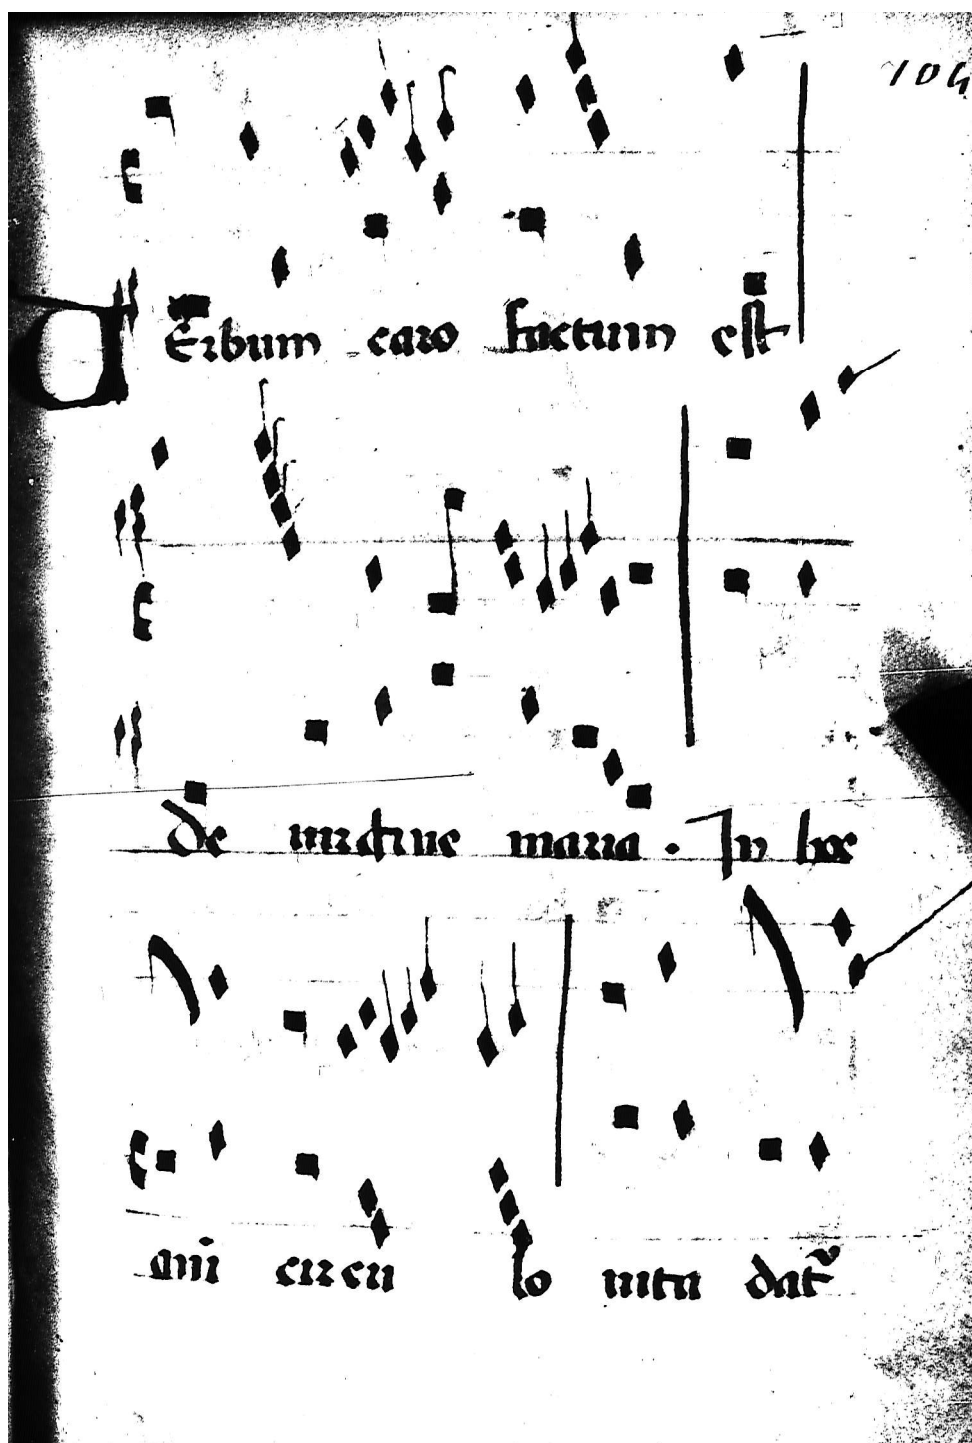 104
Verbum caro factum est
de virgine maria . In hoc
anni circulo vita datur